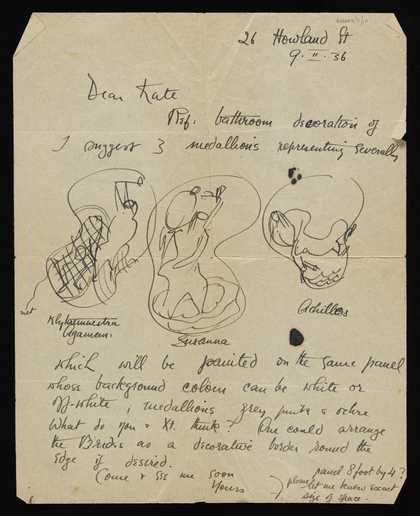 26 Howland St
9. II. 36
Dear Kate
Ref. bathroom decoration of
I suggest 3 medallions representing severally
net
Klytaemnestra
Agamem.
Susanna
Achilles
which will be painted on the same panel
whose background colour can be white or
off-white, medallions grey pinks & ochre
What do you & Xt. think? One could arrange
the Birds as a decorative border round the
edge if desired.
Come & see me soon
Yours
panel 8 foot by 4?
please let me know exact
size of space.